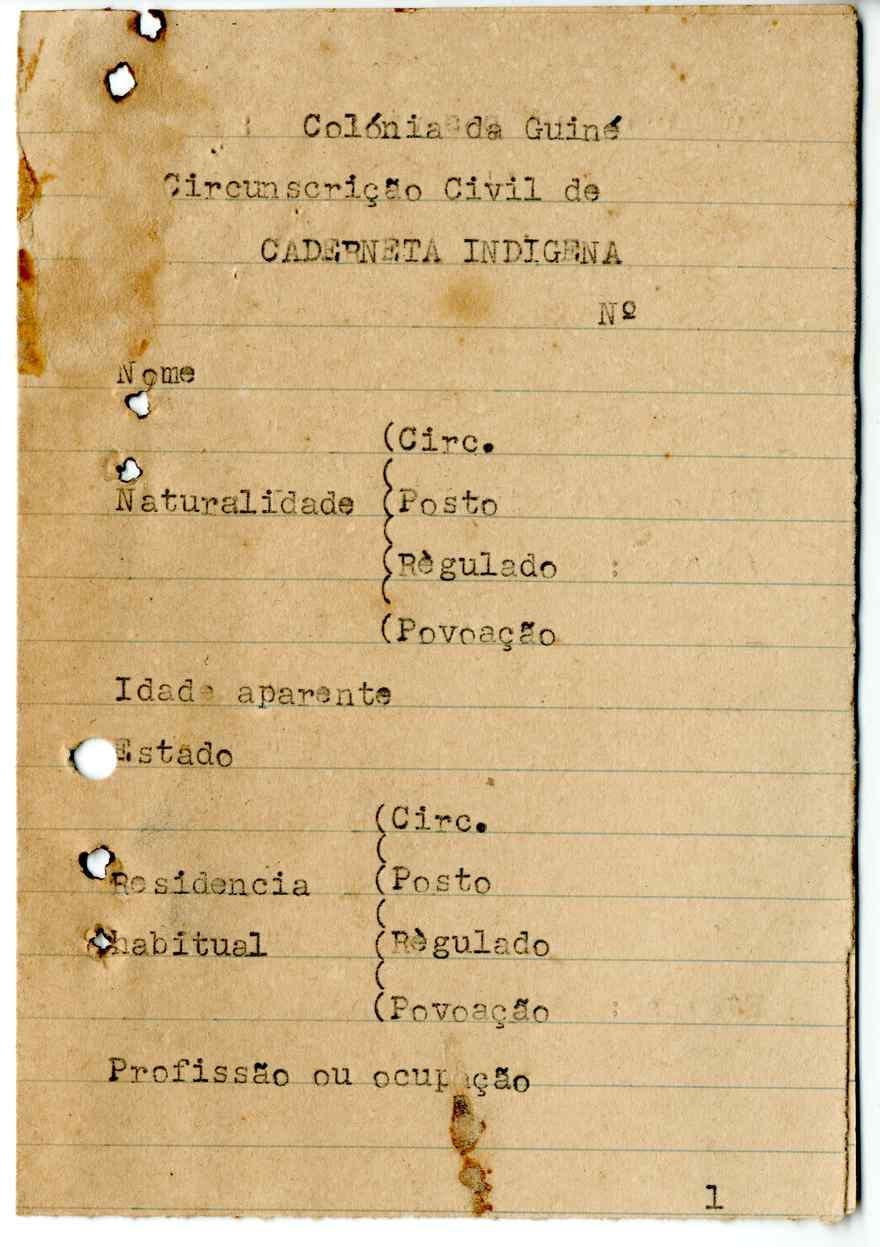 Colónia da Guiné
Circunscrição Civil de
CADERNETA INDÍGENA
Nº
Nome
(Circ.
(
Naturalidade (Posto
(
(Règulado :
(
(Povoação
Idade aparente
Estado
(Circ.
(
Residencia (Posto
(
habitual (Règulado
(
(Povoação :
Profissão ou ocupação
1